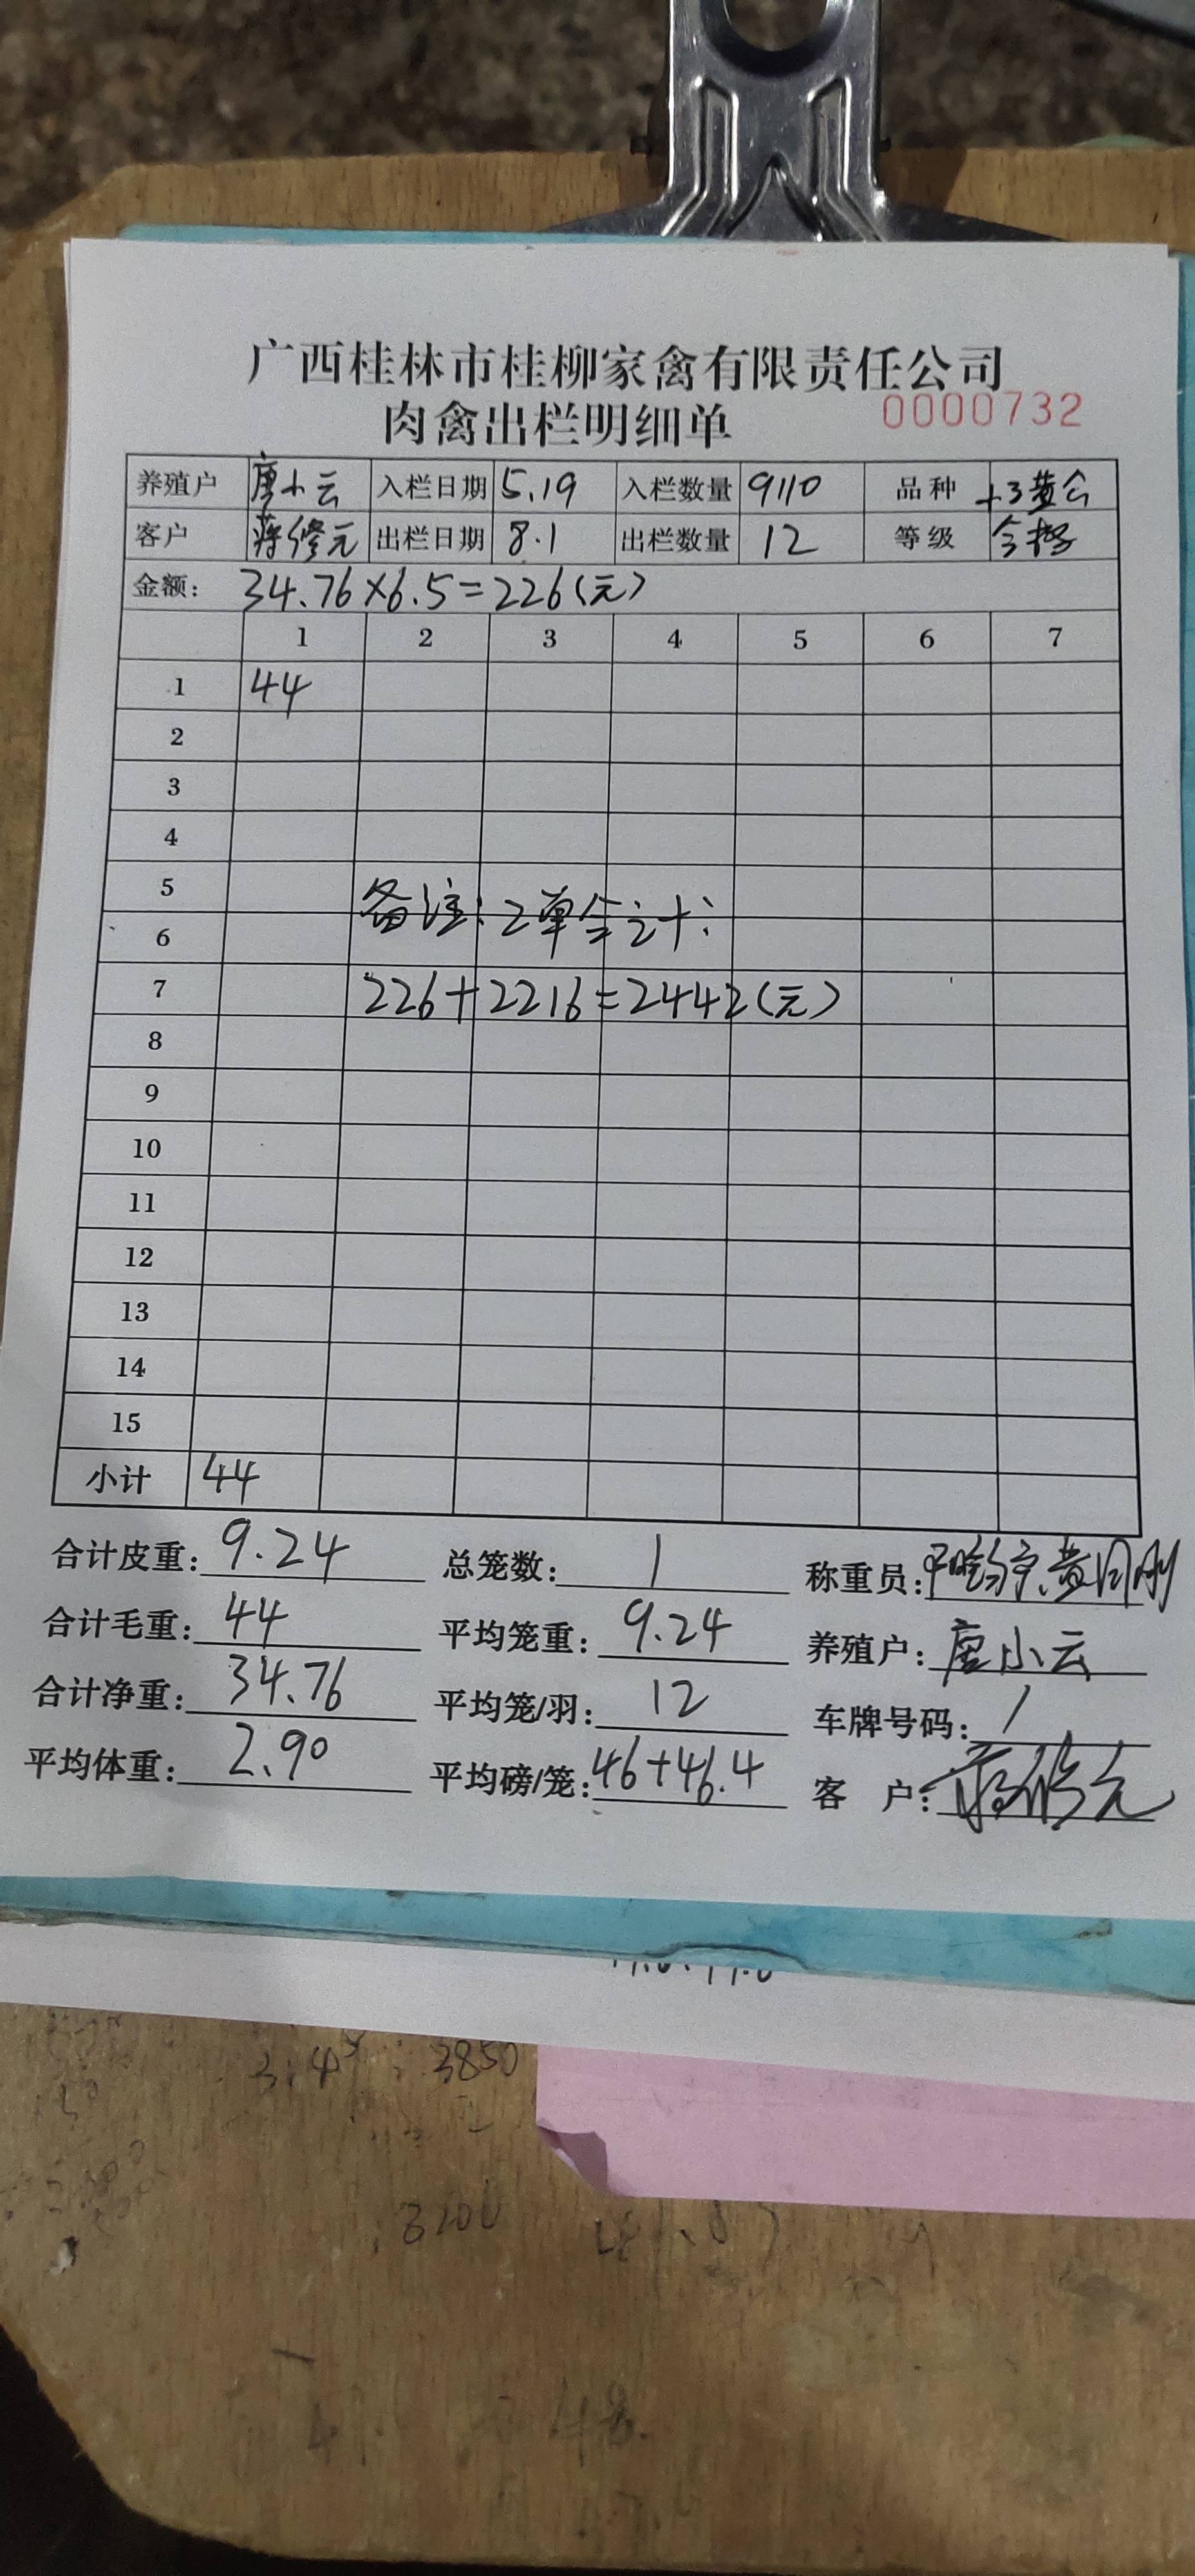 广西桂林市桂柳家禽有限责任公司
肉禽出栏明细单 0000732
养殖户 唐小云 入栏日期 5.19 入栏数量 9110 品种
客户 蒋修元 出栏日期 8.1 出栏数量 12 等级
金额: 34.76×6.5=226(元)
1 2 3 4 5 6 7
1 44
2
3
4
5
备注:2单合计:
6
7 226+2216=2442(元)
8
9
10
11
12
13
14
15
小计 44
合计皮重: 9.24 总笼数: 1 称重员:
合计毛重: 44 平均笼重: 9.24 养殖户: 唐小云
合计净重: 34.76 平均笼/羽: 12 车牌号码: /
平均体重: 2.90 平均磅/笼: 46+46.4 客 户: 蒋修元
3850
3200